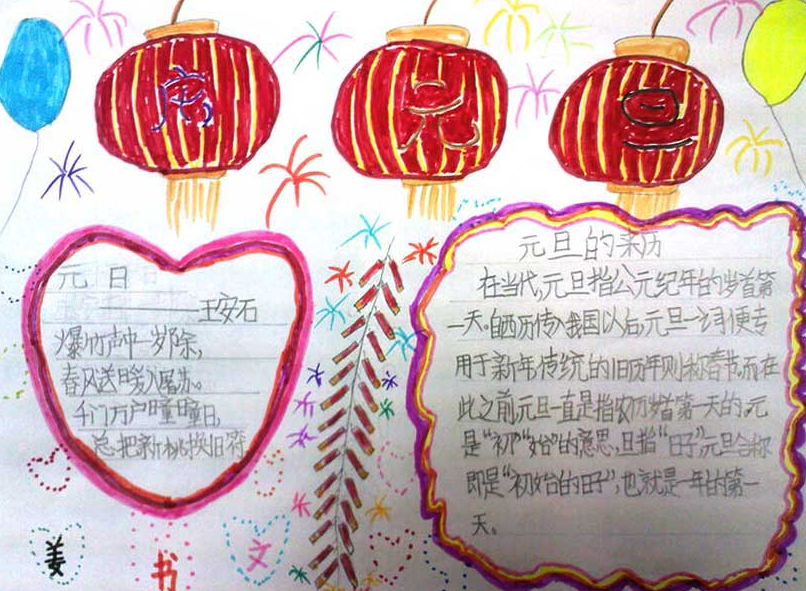 庆 元 旦
元日
——王安石
爆竹声中一岁除,
春风送暖入屠苏。
千门万户曈曈日,
总把新桃换旧符
元旦的来历
在当代,元旦指公元纪年的岁首第
一天。自西历传入我国以后,元旦一词便专
用于新年,传统的旧历年则称春节,而在
此之前,元旦一直是指农历岁首第一天的。元
是“初”“始”的意思,旦指“日子”,元旦合称
即是“初始的日子”,也就是一年的第一
天。
姜 书 文